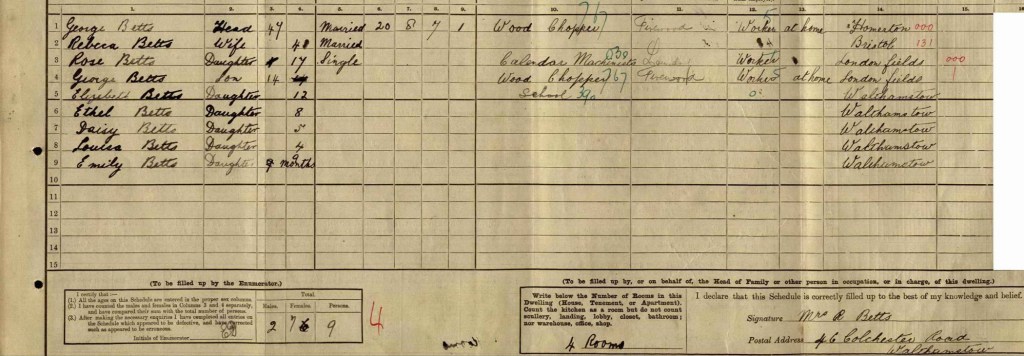 1. 2. 3. 4. 5. 6. 7. 8. 9. 10. 11. 12. 13. 14. 15. 16.
1 George Betts Head 47 Married 20 8 7 1 Wood Chopper 767 Firewood Worker at home Homerton 000
2 Rebeca Betts Wife 41 Married Bristol 131
3 Rose Betts Daughter 17 Single Calendar 030 Worker London fields 000
4 George Betts Son 14 Wood Chopper 767 Firewood Worker at home London fields
5 Elizabeth Betts Daughter 12 School 390 Walthamstow
6 Ethel Betts Daughter 8 Walthamstow
7 Daisy Betts Daughter 5 Walthamstow
8 Louisa Betts Daughter 4 Walthamstow
9 Emily Betts Daughter 9 months Walthamstow
10
11
12
13
14
15
(To be filled up by the Enumerator.)
I certify that:—
(1.) All the ages on this Schedule are entered in the proper sex columns.
(2.) I have counted the males and females in Columns 3 and 4 separately, and have compared their sum with the total number of persons.
(3.) After making the necessary enquiries I have completed all entries on the Schedule which appeared to be defective, and have corrected such as appeared to be erroneous.
Initials of Enumerator
Total.
Males. Females. Persons.
2 7 9
4
(To be filled up by, or on behalf of, the Head of Family or other person in occupation, or in charge, of this dwelling.)
Write below the Number of Rooms in this Dwelling (House, Tenement, or Apartment). Count the kitchen as a room but do not count scullery, landing, lobby, closet, bathroom; nor warehouse, office, shop.
4 Rooms
I declare that this Schedule is correctly filled up to the best of my knowledge and belief.
Signature Mrs R Betts
Postal Address 46 Colchester Road
Walthamstow